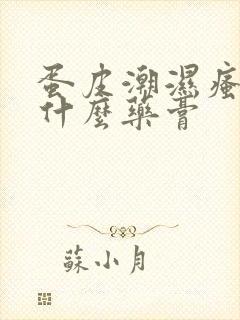 蛋皮潮濕瘙
什麼藥膏
蘇小月